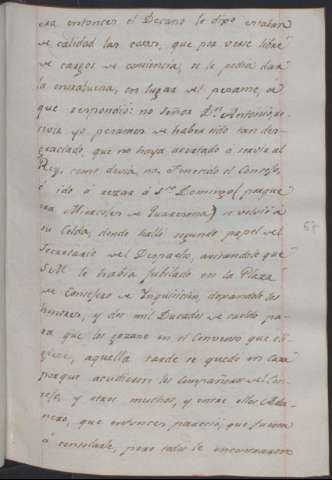 era entonces el Decano le dixo estaban
de calidad las cosas, que por verse libre
de cargos de conciencia, se le podia dar
la enorabuena, en lugar del pesame, á
que respondió: no señor Dn. Antonio,
yo pesames de haber sido tan des-
graciado, que no haya acertado a servir al
Rey, como devia, no tenerido el Consejo,
ó ido á rezar á Sto. Domingo (porque
era Miercoles de Quaresma) se volvió á
su Celda, donde halló segundo papel del
Secretario del Despacho, avisandole que
S.M. le habia jubilado en la Plaza
de Consejero de Inquisicion, dexandole los
honores, y dos mil Ducados de sueldo pa-
ra que los gozase en el Convento que eli-
giese, aquella tarde se quedo en casa
porque acudieron los compañeros del Con-
sejo, y otros muchos, y entre ellos
que entonces parecio, que fueron
á consolarle, pero todos le encontraron
57